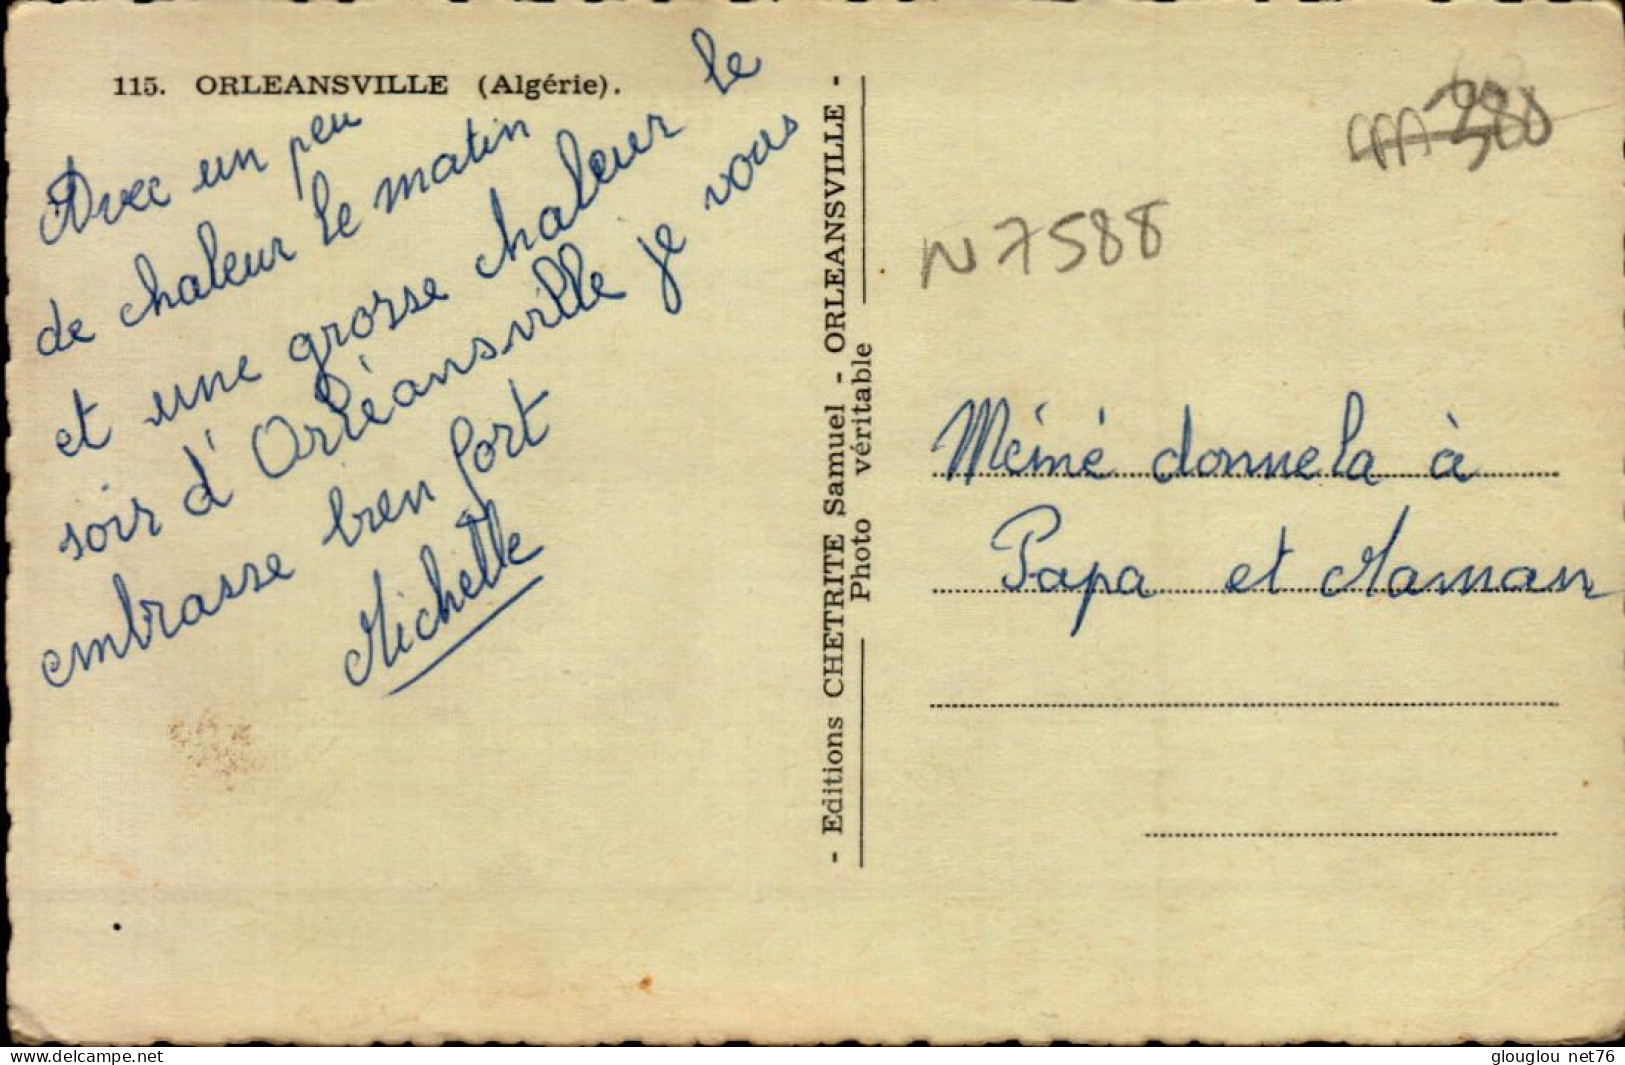 115. ORLEANSVILLE (Algérie).
Avec un peu
de chaleur le matin
et une grosse chaleur le
soir d'Orléansville je vous
embrasse bien fort
Michelle
- Editions CHETRITE Samuel - ORLEANSVILLE -
Photo véritable
N7588
Méiné donnela à
Papa et Maman
www.delcampe.net
glouglou_net76